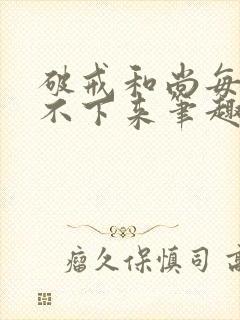 破戒和尚每
不下来笔趣
瘤久保慎司 高